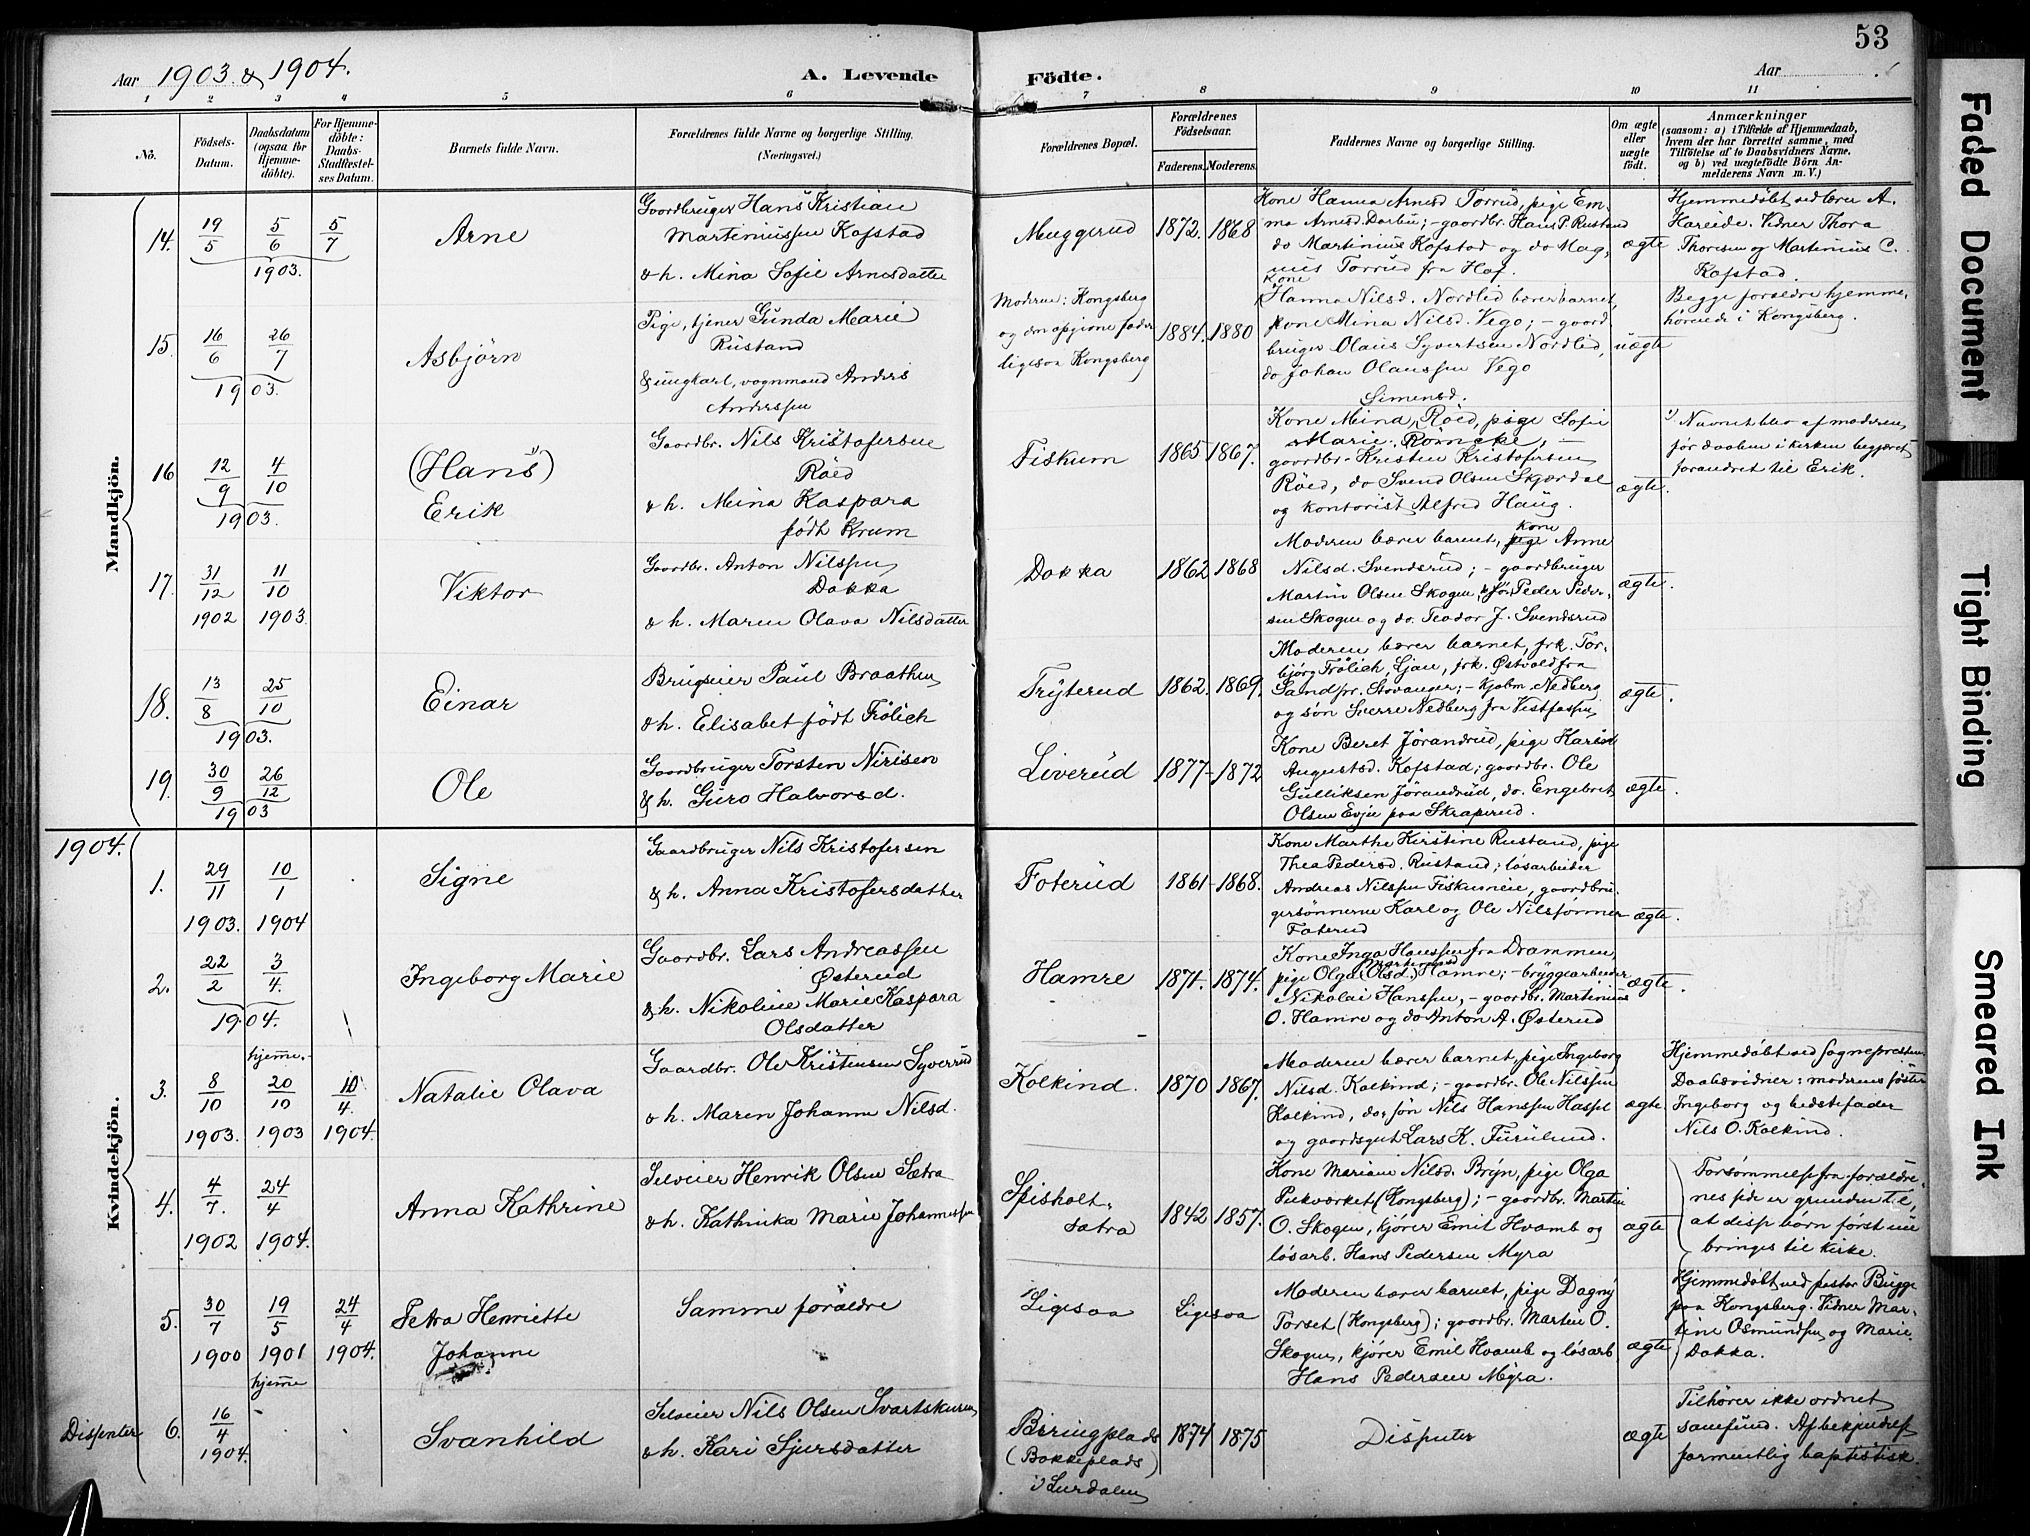 53
Aar 1903. & 1904.
A. Levende Födte.
Aar
1 2 3 4 5 6 7 8 9 10 11
No.
Födsels-Datum.
Daabsdatum (ogsaa for Hjemme-döbte).
For Hjemme-döbte: Daabs-Stadfæstel-ses Datum.
Barnets fulde Navn.
Forældrenes fulde Navne og borgerlige Stilling.
(Næringsvei.)
Forældrenes Bopæl.
Forældrenes Födselsaar.
Faderens. Moderens.
Faddernes Navne og borgerlige Stilling.
Om ægte eller uægte födt.
Anmærkninger
(saasom: a) i Tilfælde af Hjemmedaab, hvem der har forrettet samme, med Tilföielse af to Daabsvidners Navne, og b) ved uægtefödte Börn An-melderens Navn m. V.)
Mandkjön.
14. 19/5 5/6 5/7
1903.
Arne
Gaardbruger Hans Kristian
Martiniussen Kofstad
& h. Mina Sofie Arnesdatter
Muggerud
1872. 1868
Kone Hanna Arnesd. Torrud, pige Em-
ma Arnesd. Darbu; - gaardbr. Hans P. Rustand
do Martinius Kofstad og do Mag-
nus Torrud fra Hof.
ægte
Hjemmedøbt ved lærer A.
Hareide. Vidner Thora
Thoresen og Martinius C.
Kofstad.
15. 16/6 26/7
1903.
Asbjörn
Pige, tjener Gunda Marie
Rustand
& ungkarl, vognmand Anders
Anderssen
Moderen: Kongsberg
og den opgivne fader
ligesaa Kongsberg
1884. 1880
Kone
Hanna Nilsd. Nordlid bærer barnet,
kone Mina Nilsd. Vego; - gaard-
bruger Olaus Syvertsen Nordlid,
do Johan Olaussen Vego
uægte
Begge forældre hjemme-
hörende i Kongsberg.
16 12/9 4/10
1903.
(Hans) 1)
Erik
Gaardbr. Nils Kristofersen
Röed
& h. Mina Kaspara
födt Krum
Fiskum
1865 1867.
Simensd.
Kone Mina Röed, pige Sofie
Marie Römcke, -
gaardbr. Kristen Kristofersen
Röed, do Svend Olsen Skjørdal
og kontorist Alfred Haug.
ægte.
1) Navnet blev af moderen
før daaben i kirken begjæret
forandret til Erik.
17. 31/12 11/10
1902 1903.
Viktor
Gaardbr. Anton Nilssen
Dokka
& h. Maren Olava Nilsdatter
Dokka
1862 1868
Moderen bærer barnet, kone Anne
Nilsd. Svendsrud; - gaardbruger
Martin Olsen Skogen, Peder Peder-
sen Skogen og do. Teodor J. Svendsrud
ægte.
18. 13/8 25/10
1903.
Einar
Brugseier Paul Braathen
& h. Elisabet födt Frölich
Tryterud
1862. 1869.
Moderen bærer barnet, frk. Tor-
björg Frölich Ljan, frk. Østvold fra
Sandsgr. Stavanger; - kjøbm. Nedberg
og søn Sverre Nedberg fra Vestfossen
ægte.
19. 30/9 26/12
1903
Ole
Gaardbruger Torsten Nirisen
& h. Guro Halvorsd.
Liverud
1877 - 1872
Kone Beret Jörandrud, pige Karen
Augustsd. Kofstad; gaardbr. Ole
Gulliksen Jörandrud, do. Engebret
Olsen Evju paa Skraperud.
ægte.
1904.
Kvindekjön.
1. 29/11 10/1
1903. 1904
Signe
Gaardbruger Nils Kristofersen
& h. Anna Kristofersdatter
Foterud
1861 - 1868.
Kone Marthe Kirstine Rustand, pige
Thea Pedersd. Rustand; løsarbeider
Andreas Nilssen Fiskumeie, gaardbru-
gersönnerne Karl og Ole Nilssönner
Foterud
ægte.
2. 22/2 3/4.
1904.
Ingeborg Marie
Gaardbr. Lars Andreassen
Østerud
& h. Nikoline Marie Kaspara
Olsdatter
Hamre
1871. 1874.
Kone Inga Hanssen fra Drammen,
pige Olga (Olsd.) Hamre; - bryggearbeider
Nikolai Hanssen, - gaardbr. Martinius
O. Hamre og do Anton A. Østerud
ægte.
3. 8/10 hjemme. 20/10 10/4.
1903. 1903 1904.
Natalie Olava
Gaardbr. Ole Kristensen Syverud
& h. Maren Johanne Nilsd.
Kolkind.
1870 1867.
Moderen bærer barnet, pige Ingeborg
Nilsd. Kolkind; - gaardbr. Ole Nilssen
Kolkind, do. søn Nils Hanssen Hassel
og gaardsgut Lars K. Furulund.
ægte
Hjemmedøbt ved sognepresten.
Daabsvidner: moderens søster
Ingeborg og bedstefader
Nils O. Kolkind.
4. 4/7. 24/4
1902 1904.
Anna Kathrine
Selveier Henrik Olsen Sætra
& h. Kathinka Marie Johannessen
Spisholt-
sætra
1842 1857.
Kone Mariane Nilsd. Bryn, pige Olga
Pukværket (Kongsberg); - gaardbr. Martin
O. Skogen, kjører Emil Hvamb og
løsarb. Hans Pedersen Myra
ægte
Forsömmelse fra forældre-
nes side er grunden til,
at disse börn først nu
bringes til kirke.
5. 30/7 19/5 24/4
1900 1901 1904.
Petra Henriette
Johanne
Samme forældre
Ligesaa
Ligesaa
Moderen bærer barnet, pige Dagny
Torset (Kongsberg); gaardbr. Marten O.
Skogen, kjører Emil Hvamb og løsarb
Hans Pedersen Myra.
ægte
Hjemmedøbt ved pastor Bugge
paa Kongsberg. Vidner Mar-
tine Osmundsen og Marie
Dokka.
Dissenter 6. 16/4 hjemme
1904.
Svanhild
Selveier Nils Olsen Svartskuren
& h. Kari Sjursdatter
Beringplads
(Bakkeplads)
i Lurdalen
1874 1875
Dissenter
ægte
Tilhører ikke ordnet
samfund. Af bekjendelse
formentlig baptistisk.
Faded Document
Tight Binding
Smeared Ink